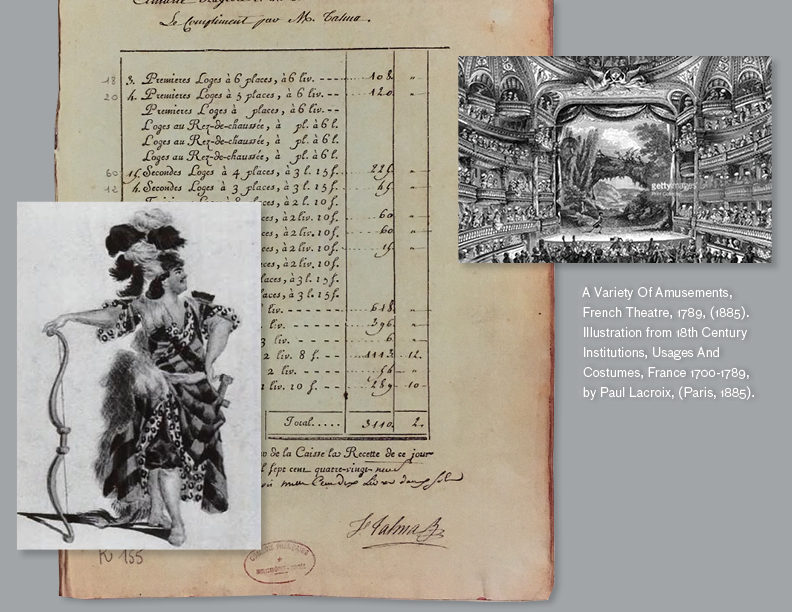 Le Compliment par M. Talma.
18 3. Premieres Loges à 6 places, à 6 liv. --- 108 "
20 4. Premieres Loges à 5 places, à 6 liv. --- 120 "
Premieres Loges à places, à 6 liv. ---
Loges au Rez-de-chaussée, à pl. à 6 l.
Loges au Rez-de-chaussée, à pl. à 6 l.
Loges au Rez-de-chaussée, à pl. à 6 l.
60 15. Secondes Loges à 4 places, à 3 l. 15 s. 225 "
12 4. Secondes Loges à 3 places, à 3 l. 15 s. 45 "
à 2 l. 10 s.
aces, à 2 liv. 10 s. 60 "
aces, à 2 liv. 10 s. 60 "
aces, à 2 liv. 10 s. 15 "
ces, à 2 liv. 10 s.
places, à 3 l. 15 s.
laces, à 3 l. 15 s.
liv. --- 618 "
liv. --- 396 "
3 liv. --- 6 "
2 liv. 8 s. --- 1113 12.
2 liv. --- 54 "
liv. 10 s. --- 289 10
Total..... 3110 2.
de la Caisse la Recette de ce jour
sept cent quatre-vingt neuf
Talma
R 155
gettyimages
A Variety Of Amusements,
French Theatre, 1789, (1885).
Illustration from 18th Century
Institutions, Usages And
Costumes, France 1700-1789,
by Paul Lacroix, (Paris, 1885).